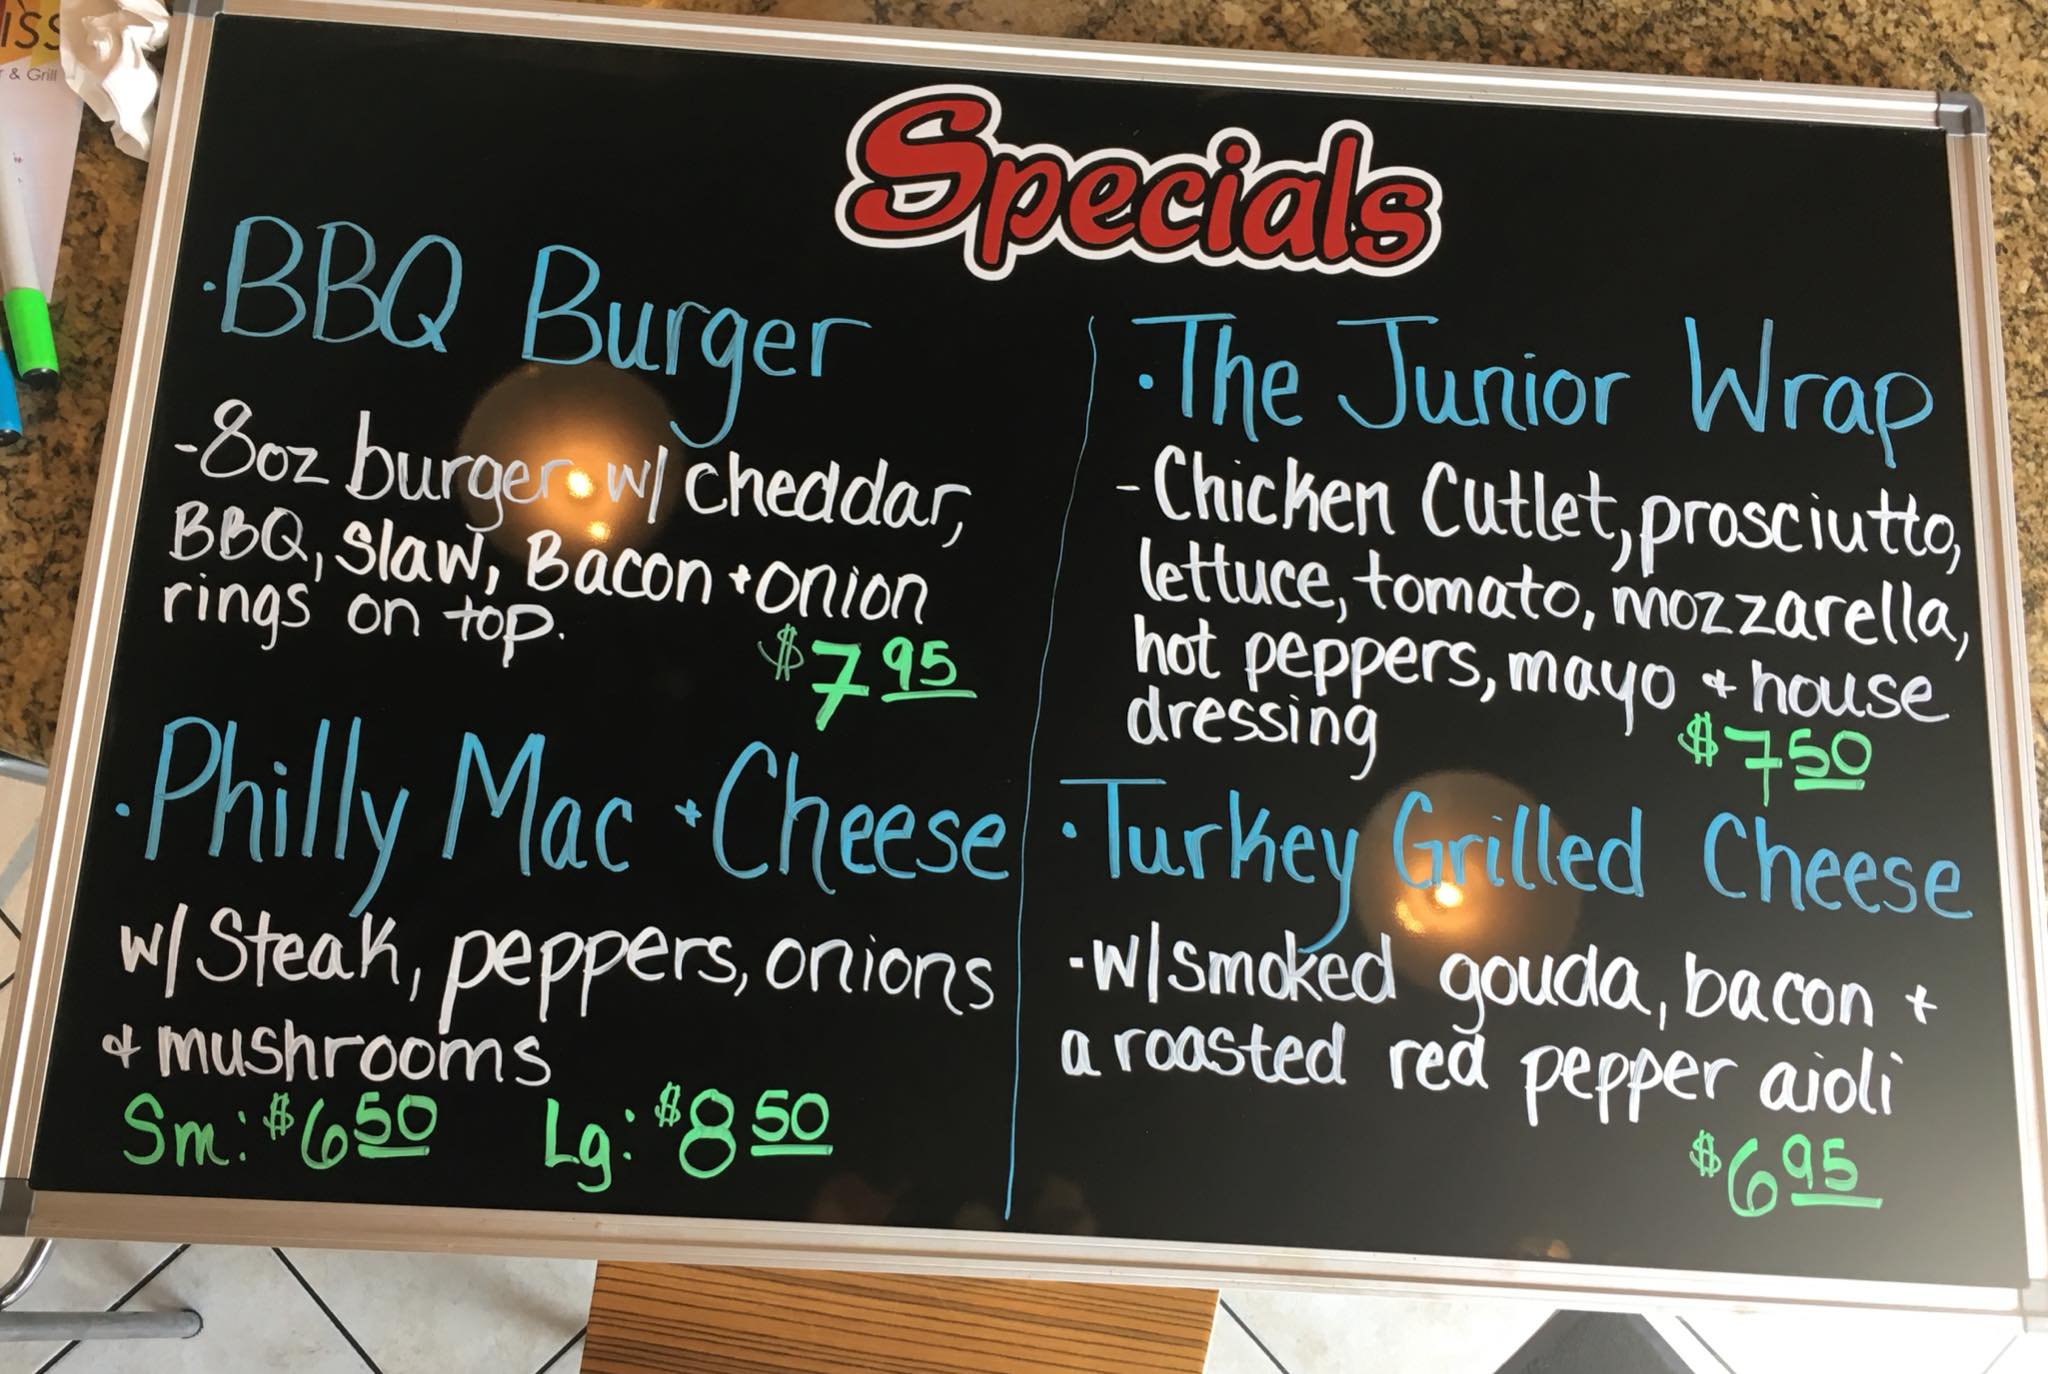 ISS
& Grill
Specials
·BBQ Burger
-8oz burger w/ cheddar,
BBQ, slaw, Bacon + onion
rings on top.
$7 95
·Philly Mac + Cheese
w/ Steak, peppers, onions
+ mushrooms
Sm: $6 50 Lg: $8 50
·The Junior Wrap
-Chicken Cutlet, prosciutto,
lettuce, tomato, mozzarella,
hot peppers, mayo + house
dressing
$7 50
·Turkey Grilled Cheese
-w/smoked gouda, bacon +
a roasted red pepper aioli
$6 95